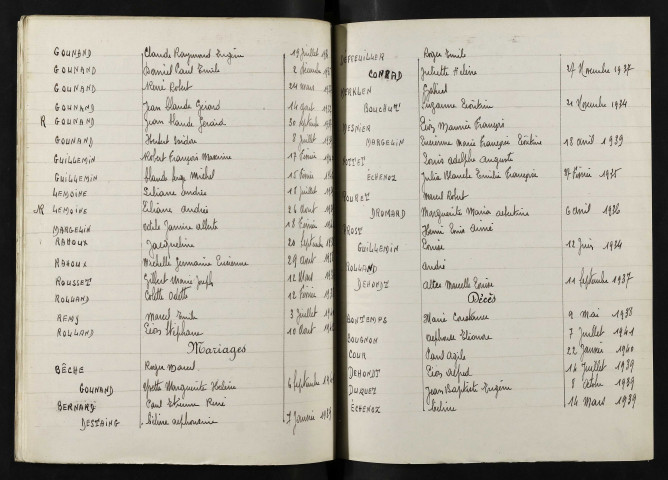 GOUNAND Claude Raymond Eugène 19 Juillet
GOUNAND Daniel Paul Emile 2 Décembre
GOUNAND René Robert 24 mars
GOUNAND Jean Claude Gérard 14 août
R GOUNAND Jean Claude Gérard 30 Septembre
GOUNAND Herbert Isidore 8 Juillet
GUILLEMIN Robert François Maxime 17 Février
GUILLEMIN Claude Serge Michel 15 Février
LEMOINE Liliane Andrée 18 Juillet
NR LEMOINE Liliane Andrée 26 août
MARGELIN Odile Janine Alberte 18 Février
RAHOUX Jacqueline 20 Septembre
RAHOUX Michelle Germaine Lucienne 29 août
ROUSSET Gilbert Marie Joseph 12 Mars
ROLLAND Colette Odette 12 Février
REMY Marcel Emile 3 Juillet
ROLLAND Léon Stéphane 10 août
Mariages
BÊCHE Roger Marcel
GOUNAND Yvette Marguerite Hélène 6 Septembre
BERNARD Paul Etienne René
DESTAING Céline Alphonsine 7 Janvier 1939
DEFEUILLER Roger Emile
CONRAD Juliette Hélène 27 Novembre 1937
MERKLEN Gabriel
Suzanne 21 Novembre 1934
MESNIER Léon Maurice François
MARGELIN Lucienne Marie Françoise 18 avril 1939
MOTTET Louis Adolphe Auguste
ECHENOZ Julia Blanche Emilie Françoise 27 Février 1935
Marcel Robert
DROMARD Marguerite Maria 6 avril 1936
ROST Henri Aimé
GUILLEMIN Louise 12 Juin 1934
ROLLAND André
DEHONDT Marcelle 11 Septembre 1937
Décès
BONTEMPS Marie Constance 9 mai 1938
COUGNON Alphonse Eléonore 7 Juillet 1941
COUR Paul 22 Janvier 1940
DEHONDT Léon Alfred 16 Juillet 1939
DUQUET Jean Baptiste Eugène 8 1939
ÉCHENOZ Céline 14 Mars 1939